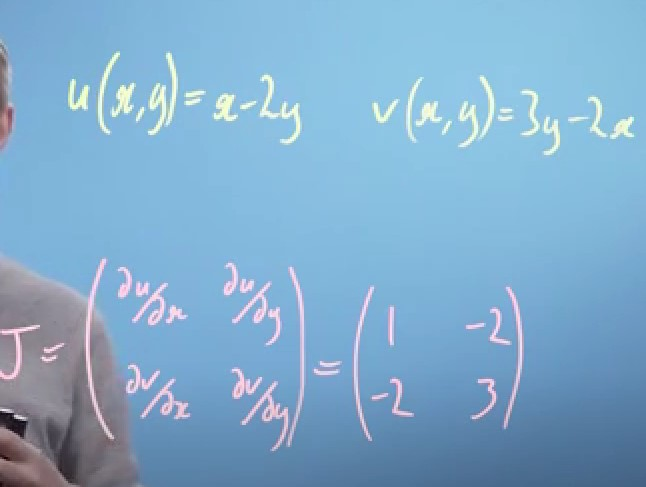 u(x,y)=x-2y v(x,y)=3y-2x
J = (∂u/∂x ∂u/∂y
∂v/∂x ∂v/∂y) = (1 -2
-2 3)